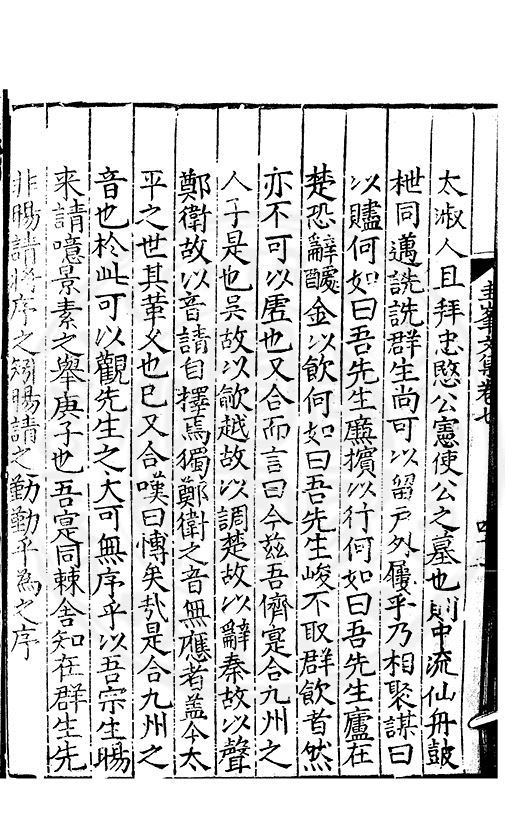 圭峯文集卷七
太淑人且拜忠愍公憲使公之墓也則中流仙舟皷
枻同邁詵詵群生尚可以留戶外屨乎乃相聚謀曰
以贐何如曰吾先生廉擯以行何如曰吾先生廬在
楚恐辭醵金以飲何如曰吾先生峻不取群飲者然
亦不可以虗也又合而言曰今兹吾儕寔合九州之
人子是也吳故以歈越故以調楚故以辭秦故以聲
鄭衛故以音請自擇焉獨鄭衛之音無應者盖今太
平之世其革乂也已又合嘆曰慱矣㢤是合九州之
音也於此可以觀先生之大可無序乎以吾宗生賜
來請噫景素之舉庚子也吾寔同棘舍知在群生先
非賜請將序之矧賜請之勤勤乎為之序